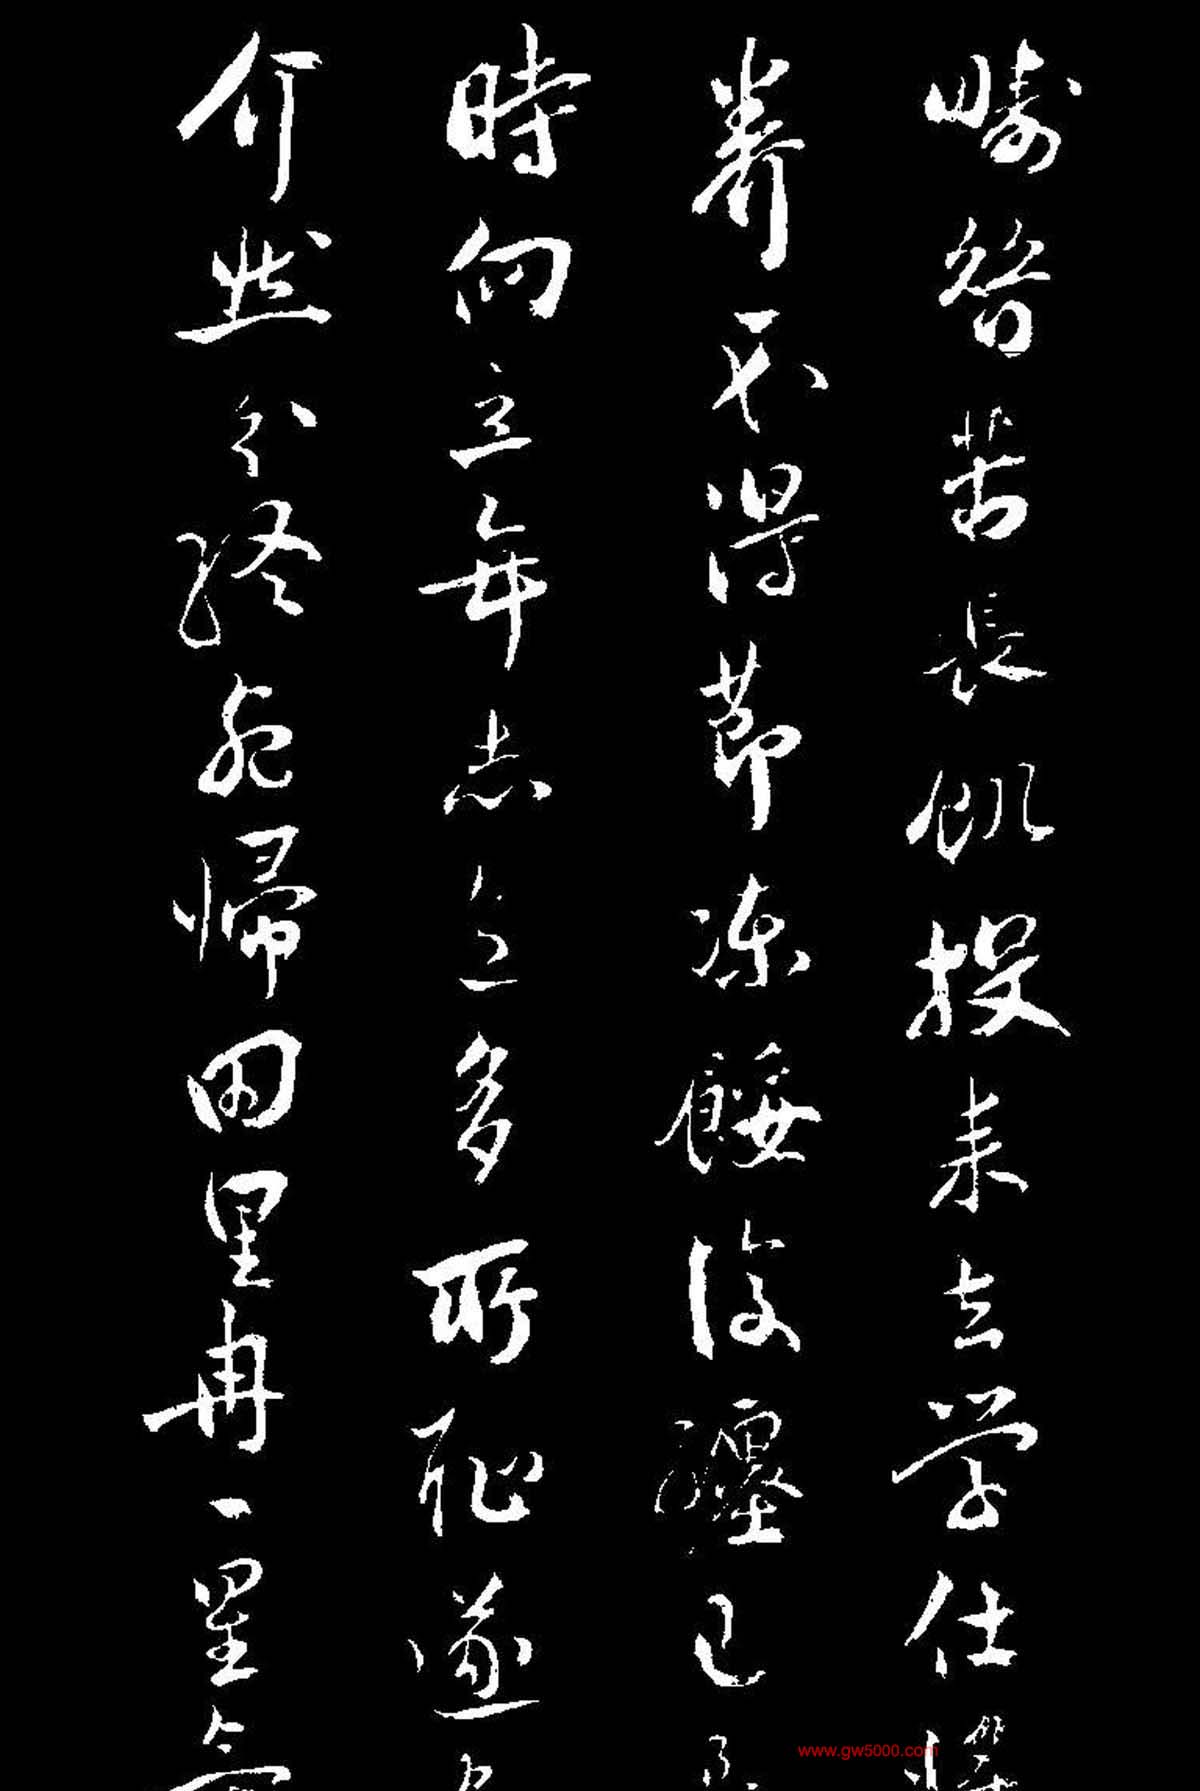 疇昔苦長飢投耒去學仕將
養不得節凍餒復纏己是
時向立年志意多所恥遂
介然分終死歸田里冉々星氣
www.gw5000.com